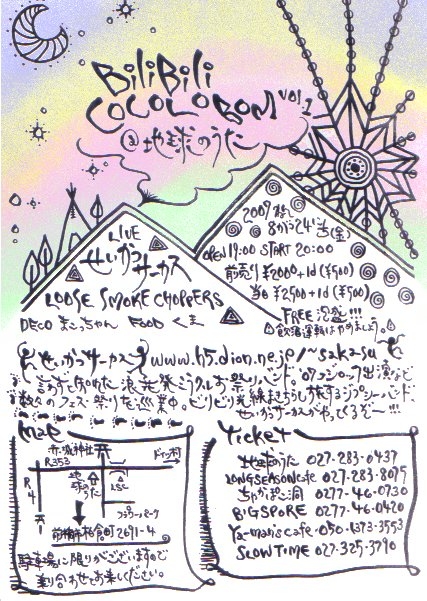 BiliBili
COCOLOBOM VOL.1
@地球のうた
LIVE
せいかつ
サーカス
LOOSE SMOKE CHOPPERS
DECO まこっちゃん FOOD くま
2009
8がつ24にち(金)
OPEN 19:00 START 20:00
前売り ¥2000+1d(¥500)
当日 ¥2500+1d(¥500)
FREE 泡盛!!!
飲酒運転はやめましょう。
せいかつサーカス www.h5.dion.ne.jp/~sakasu
言わずと知れた浪花発ミラクルお祭りバンド。07フジロック出演など
数々のフェス・祭りを巡業中。ビリビリ光線まきちらし旅するジプシーバンド、
せいかつサーカスがやってくるぞー!!!
MAP
赤城神社
R353
ドイツ村
R4
地球のうた
LSC
フラワーパーク
前橋市柏倉町2691-4
駐車場に限りがございますので
乗り合わせでお楽しください。
Ticket
地球のうた 027-283-0437
LONG SEASON Cafe 027-283-8075
ちゃかぽこ洞 0277-46-0730
BIG SPORE 0277-46-0420
Ya-man's cafe 050-1373-3553
SLOW TIME 027-325-3790